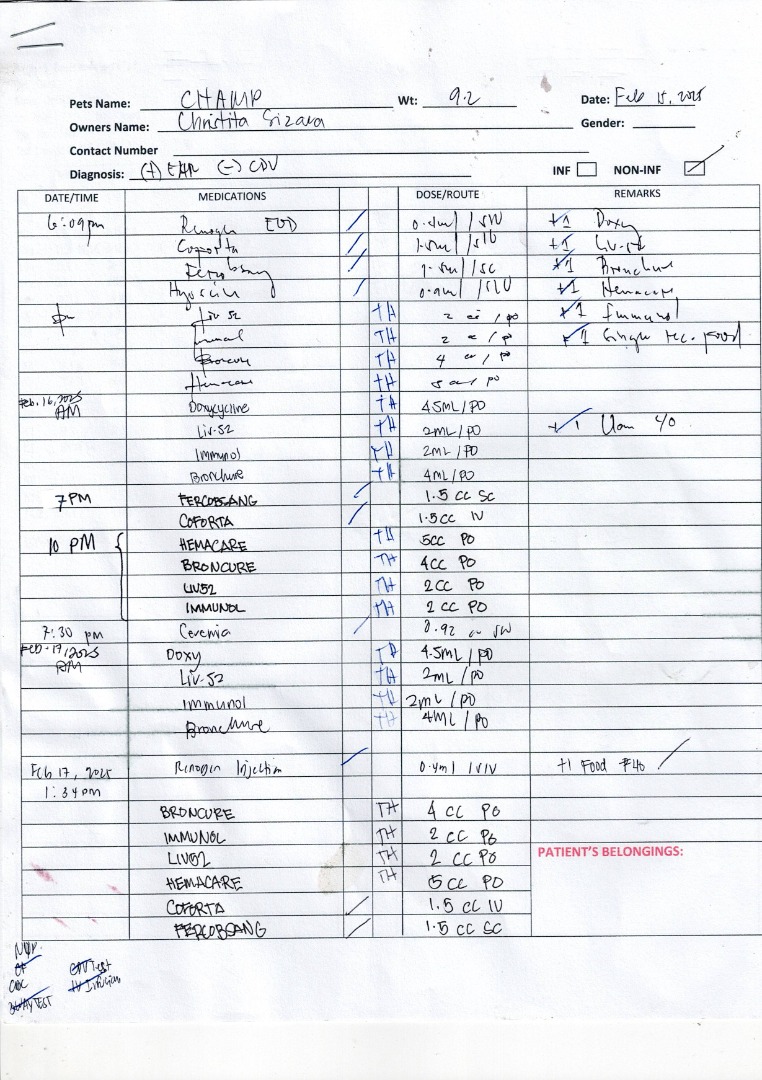 Pets Name: CHAMP Wt: 9.2 Date: Feb 15, 2025
Owners Name: Christita Gender:
Contact Number
Diagnosis: (+) EHR (-) CDV INF NON-INF
DATE/TIME MEDICATIONS DOSE/ROUTE REMARKS
6:09pm +1 Doxy
Coforta +1 Liv-52
1.5ml / SC +1 Broncure
Hyoscin +1 Hemacare
Liv 52 TH 2 cc / po +1 Immunol
TH 2 cc / po +1 Single rec. food
Broncure TH 4 cc / po
Hemacare TH 5 cc / po
Feb. 16, 2025 AM Doxycycline TH 4.5ML / PO
Liv-52 TH 2ML / PO +1
Immunol TH 2ML / PO
Bronchure TH 4ML / PO
7 PM FERCOBSANG 1.5 CC SC
COFORTA 1.5CC IV
10 PM HEMACARE TH 5CC PO
BRONCURE TH 4CC PO
LIV52 TH 2 CC PO
IMMUNOL TH 2 CC PO
7:30 pm Cerenia 0.92
FEB-17, 2025 AM DOXY TH 4.5ML / PO
Liv-52 TH 2ML / PO
Immunol TH 2mL / PO
Bronchure TH 4ML / PO
Feb 17, 2025 Injection 0.4ml +1 Food ₱40
1:34pm
BRONCURE TH 4 CC PO
IMMUNOL TH 2 CC PO
LIV52 TH 2 CC PO
PATIENT'S BELONGINGS:
HEMACARE TH 5 CC PO
COFORTA 1.5 CC IV
FERCOBSANG 1.5 CC SC
CBC CDV Test